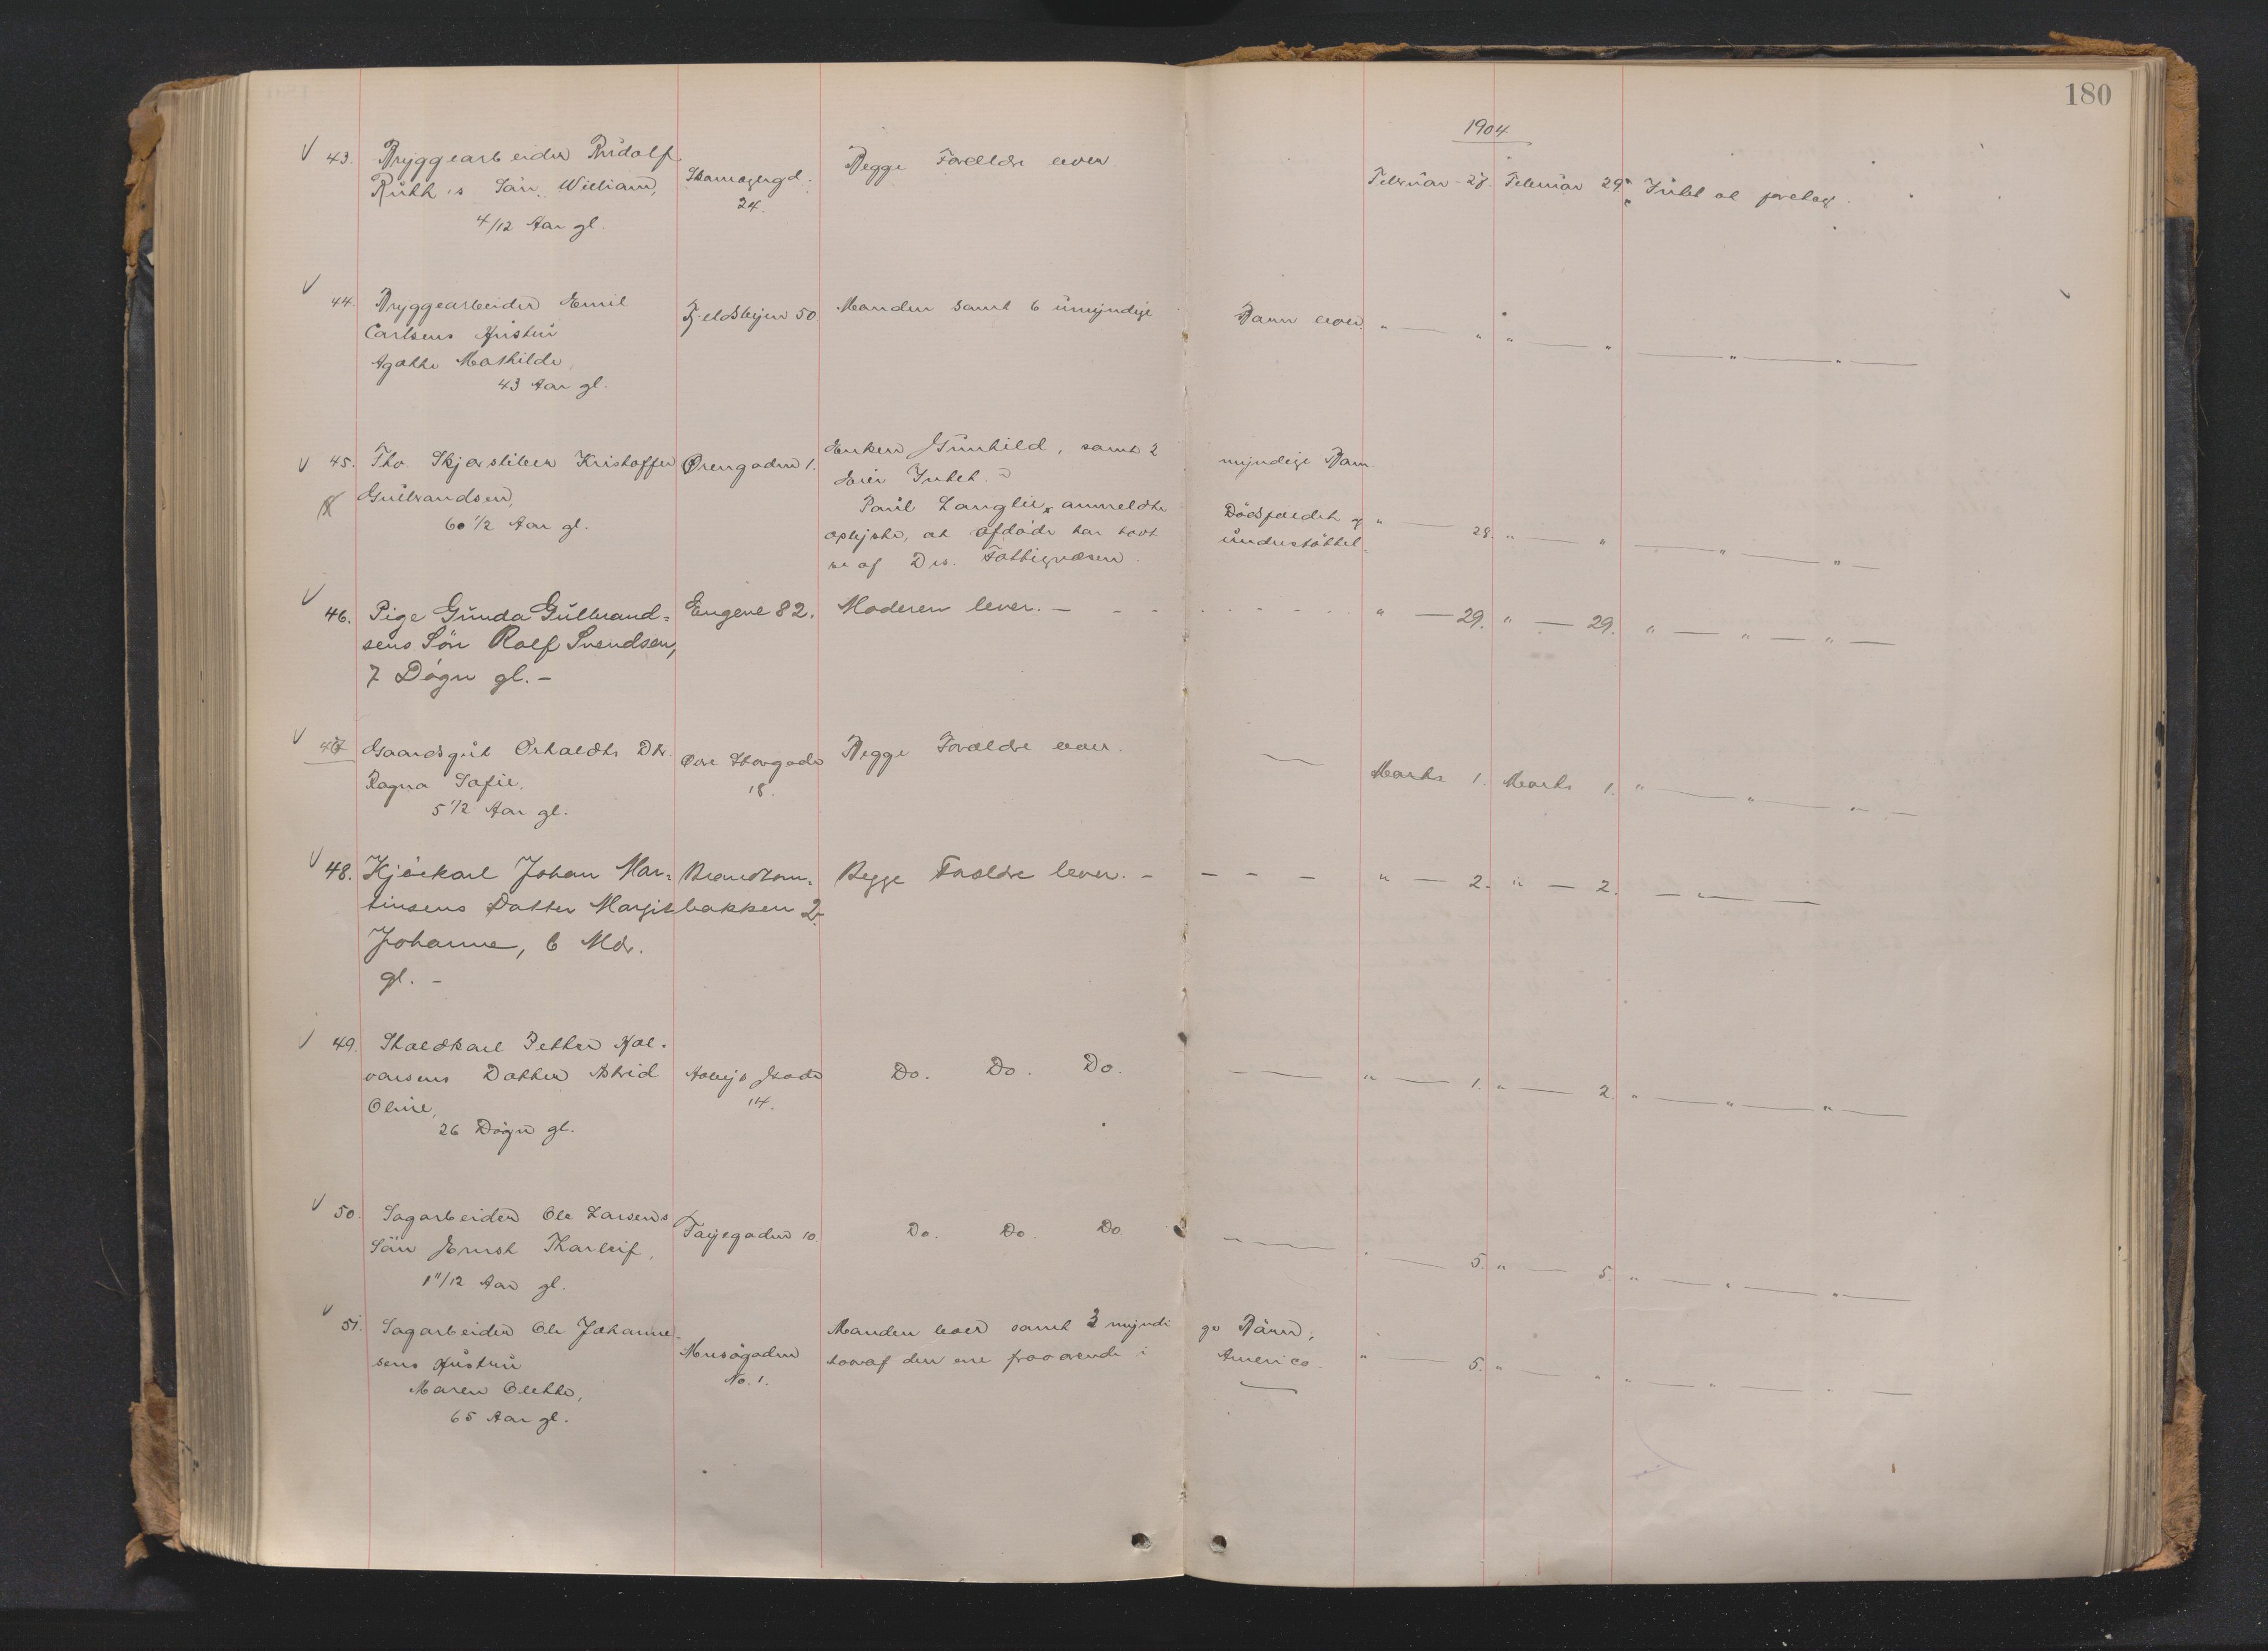 180
1904
43. Bryggearbeider Rudolf
Ruth's Sön William,
4/12 Aar gl.
24.
Begge Forældre lever
Februar 28. Februar 29. Intet at foretag.
44. Bryggearbeider Emil
Carlsens Hustru
Agathe Mathilde,
43 Aar gl.
50 Manden samt 6 umyndige Barn lever. " — " " — " — " — " —
45. Fho. Skjærsliber Kristoffer
Gulbrandsen,
60 1/2 Aar gl.
Örengaden 1.
Enken Gunhild, samt 2 myndige Barn
Eier Intet.
Paul Langlie anmeldte Dödsfaldet og
oplyste, at afdöde har havt understöttel-
se af Drs. Fattigvæsen.
" — 28. " — " — " — " —
46. Pige Gunda Gulbrand=
sens Sön Rolf Svendsen,
7 Dögn gl. —
Engene 82.
Moderen lever. — " — 29. " — 29. " — " — " —
47 Gaardsgut Dtr.
Ragna Sofie,
5 1/2 Aar gl.
Övre Storgade
18.
Begge Forældre lever. — Marts 1. Marts 1. " — " — " —
48. Kjörekarl Johan Mar=
tinsens Datter Margit
Johanne, 6 Mdr.
gl. —
bakken 2.
Begge Forældre lever. — — — — " — 2. " — 2. — " —
49. Staldkarl Petter Hal-
vorsens Datter Astrid
Oline,
26 Dögn gl.
Gade
14.
Do. Do. Do. — " — 1. " — 2. " — " — " —
50. Sagarbeider Ole Larsens
Sön Ernst Thorleif,
1 11/12 Aar gl.
10.
Do. Do. Do. — " — 5. " — 5. " — " — " —
51. Sagarbeider Ole Johanne-
sens Hustru
Maren Olette,
65 Aar gl.
No. 1.
Manden lever samt 3 myndige Börn,
hvoraf den ene fraværende i America.
" — 5. " — " " — " — " —